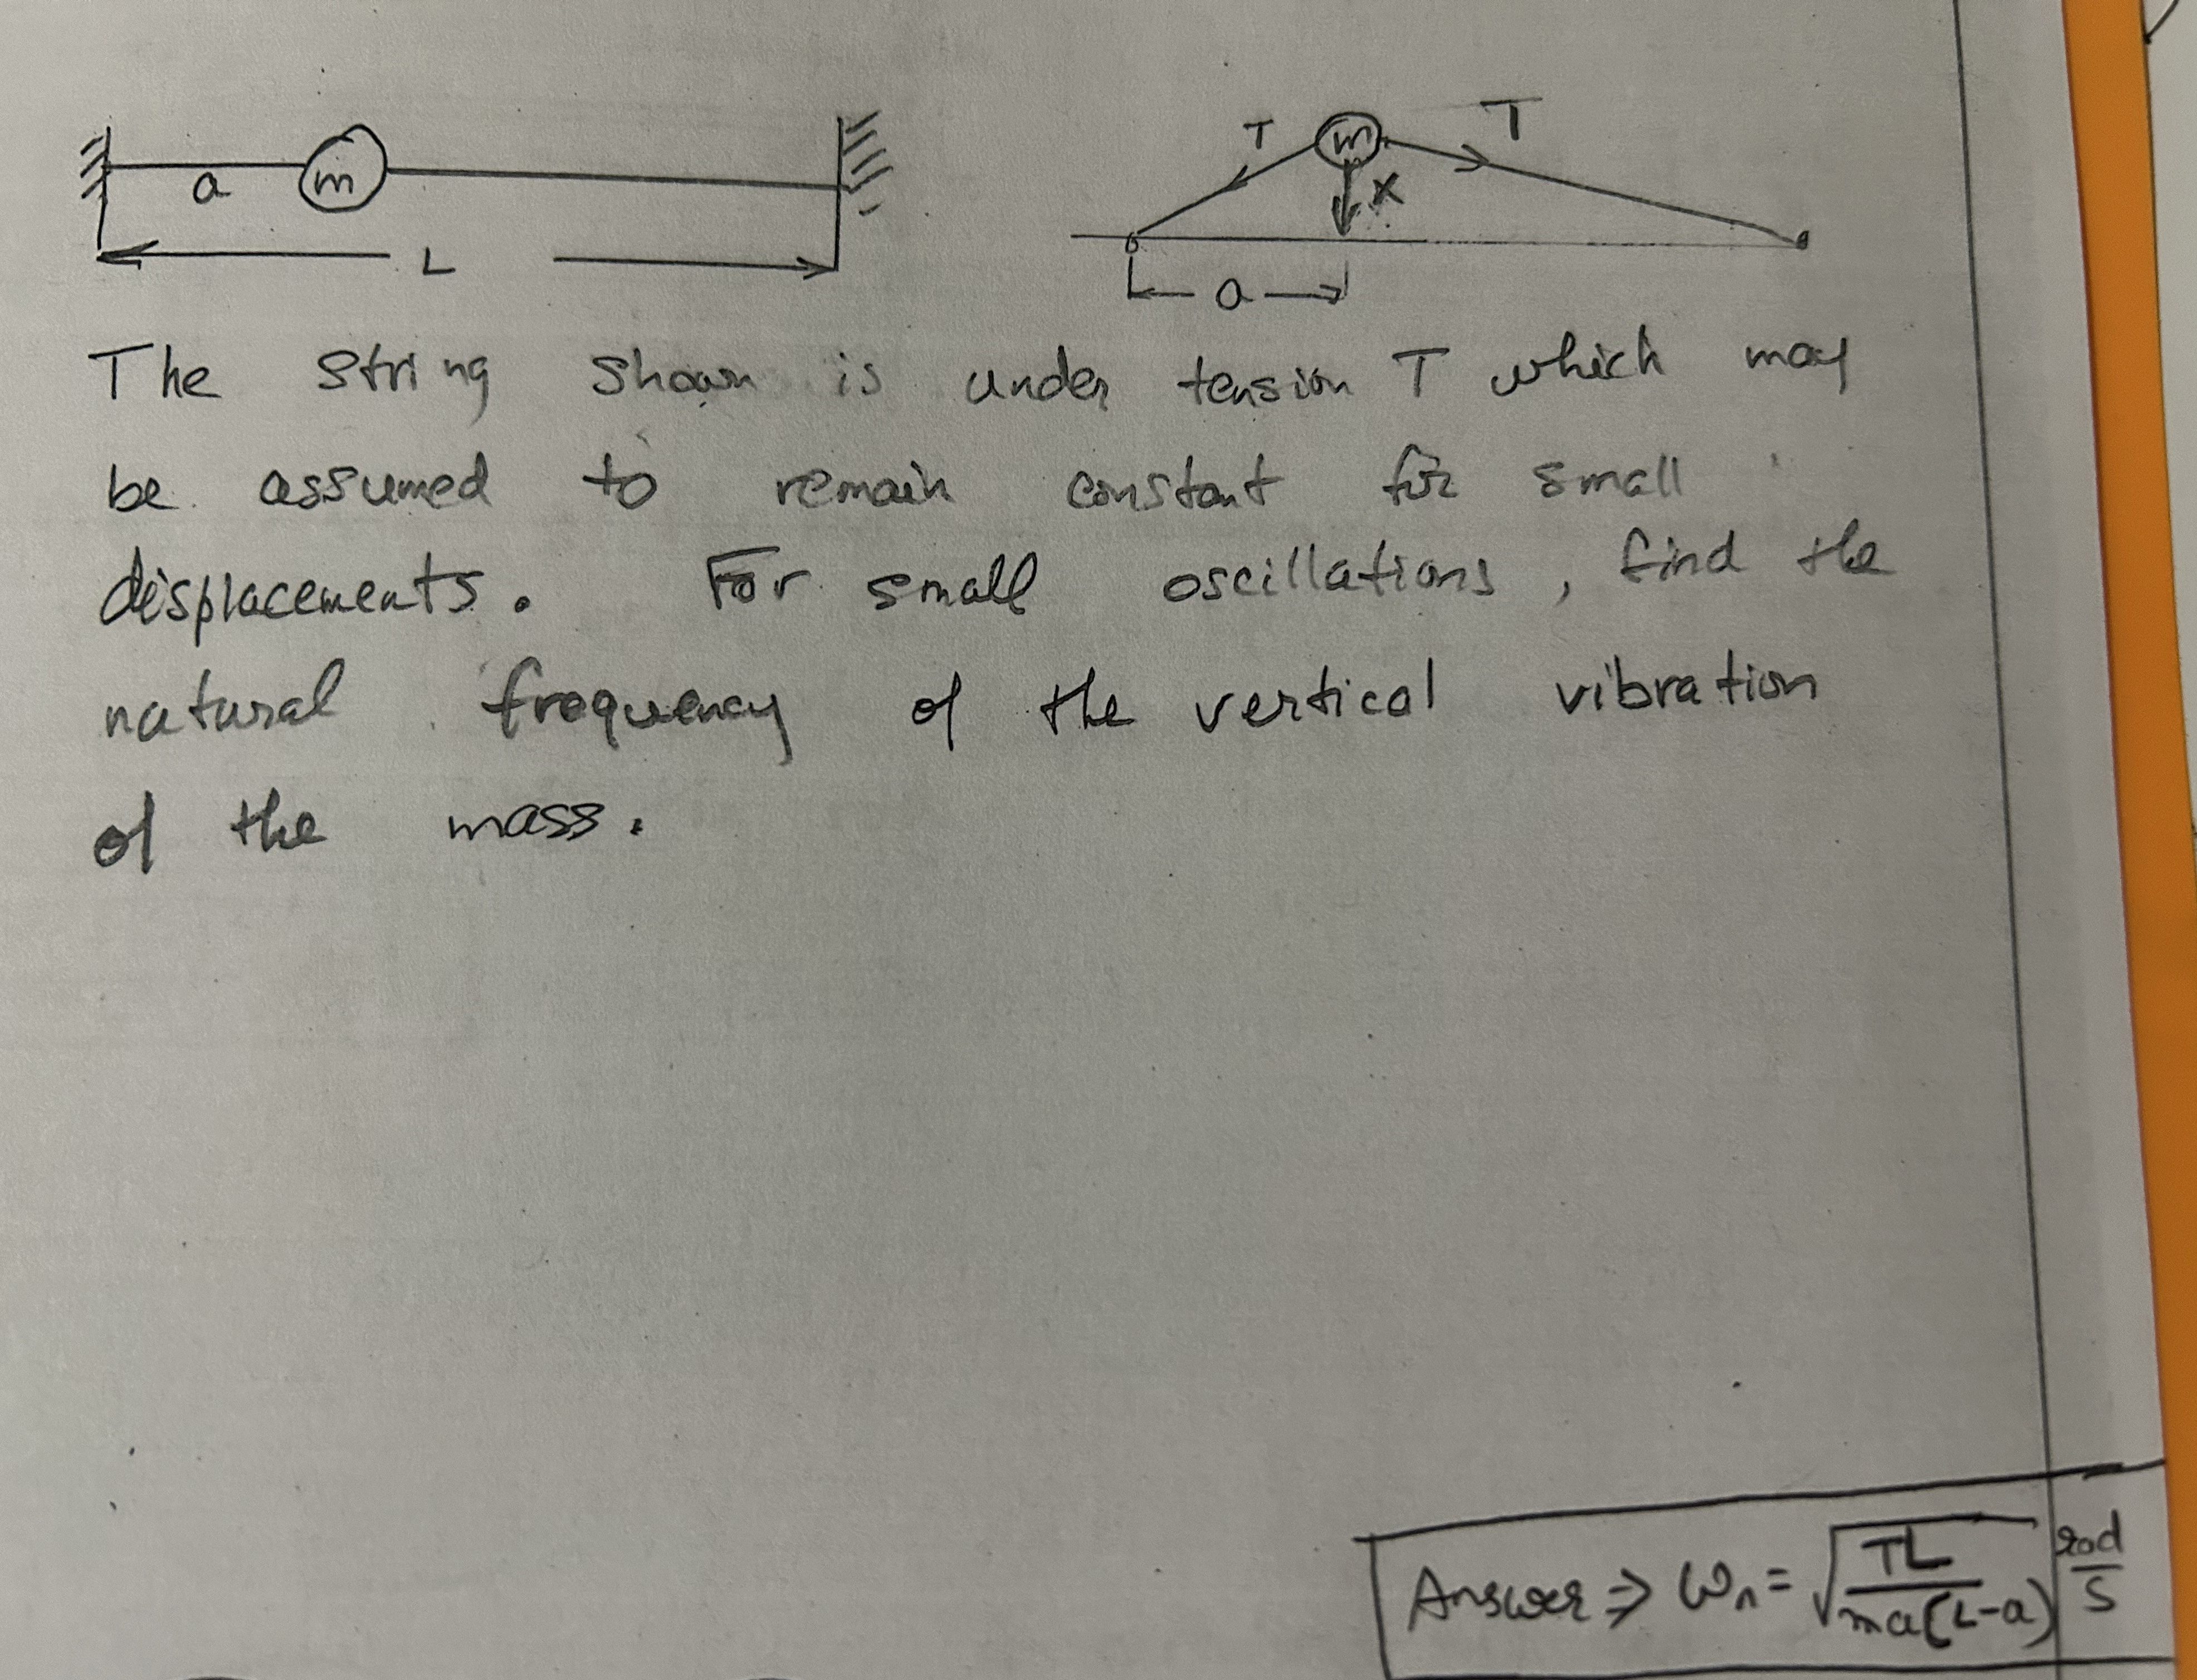 a m
L
T m T
x
a
The string shown is under tension T which may
be assumed to remain constant for small
displacements. For small oscillations, find the
natural frequency of the vertical vibration
of the mass.
Answer ⇒ ωn = √(TL / ma(L-a)) rad/s